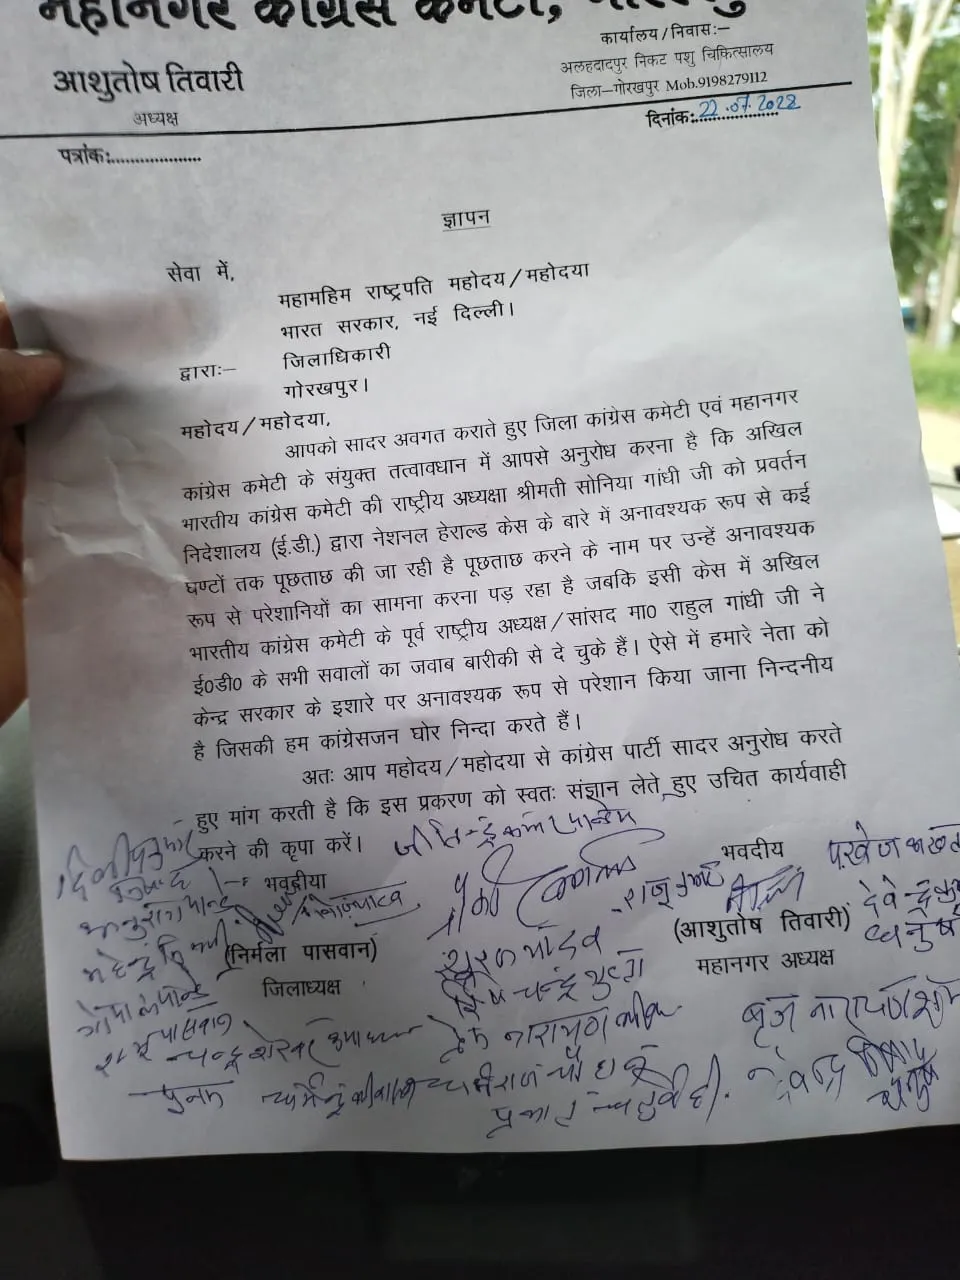 महानगर कांग्रेस कमेटी,
आशुतोष तिवारी
अध्यक्ष
कार्यालय/निवास:–
अलहदादपुर निकट पशु चिकित्सालय
जिला–गोरखपुर Mob.9198279112
पत्रांक:....................
दिनांक:22.07.2022
ज्ञापन
सेवा में,
महामहिम राष्ट्रपति महोदय/महोदया
भारत सरकार, नई दिल्ली।
द्वारा:– जिलाधिकारी
गोरखपुर।
महोदय/महोदया,
आपको सादर अवगत कराते हुए जिला कांग्रेस कमेटी एवं महानगर
कांग्रेस कमेटी के संयुक्त तत्वावधान में आपसे अनुरोध करना है कि अखिल
भारतीय कांग्रेस कमेटी की राष्ट्रीय अध्यक्षा श्रीमती सोनिया गांधी जी को प्रवर्तन
निदेशालय (ई.डी.) द्वारा नेशनल हेराल्ड केस के बारे में अनावश्यक रूप से कई
घण्टों तक पूछताछ की जा रही है पूछताछ करने के नाम पर उन्हें अनावश्यक
रूप से परेशानियों का सामना करना पड़ रहा है जबकि इसी केस में अखिल
भारतीय कांग्रेस कमेटी के पूर्व राष्ट्रीय अध्यक्ष/सांसद मा0 राहुल गांधी जी ने
ई0डी0 के सभी सवालों का जवाब बारीकी से दे चुके हैं। ऐसे में हमारे नेता को
केन्द्र सरकार के इशारे पर अनावश्यक रूप से परेशान किया जाना निन्दनीय
है जिसकी हम कांग्रेसजन घोर निन्दा करते हैं।
अतः आप महोदय/महोदया से कांग्रेस पार्टी सादर अनुरोध करते
हुए मांग करती है कि इस प्रकरण को स्वतः संज्ञान लेते हुए उचित कार्यवाही
करने की कृपा करें।
भवदीया
भवदीय
(निर्मला पासवान)
जिलाध्यक्ष
(आशुतोष तिवारी)
महानगर अध्यक्ष
सूरज यादव
पूनम